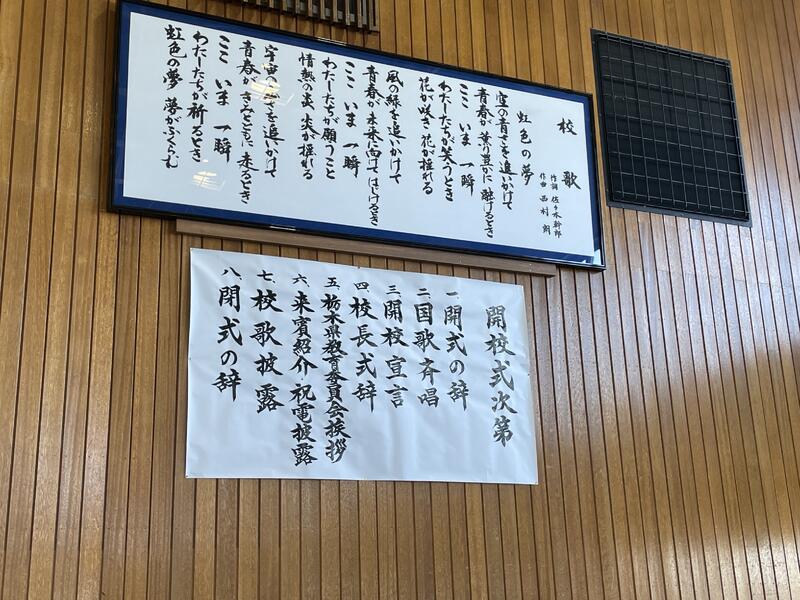 校歌
虹色の夢
作詞 佐々木幹郎
作曲 西村朗
空の青さを追いかけて
青春が 薫り豊かに 融けるとき
ここ いま 一瞬
わたしたちが笑うとき
花が咲き 花が揺れる
風の緑を追いかけて
青春が 未来に向けて はしけるとき
ここ いま 一瞬
わたしたちが願うこと
情熱の炎 炎が揺れる
青春が きみとともに 走るとき
ここ いま 一瞬
わたしたちが祈るとき
虹色の夢 夢がふくらむ
開校式次第
一、開式の辞
二、国歌斉唱
三、開校宣言
四、校長式辞
五、栃木県教育委員会挨拶
六、来賓紹介・祝電披露
七、校歌披露
八、閉式の辞